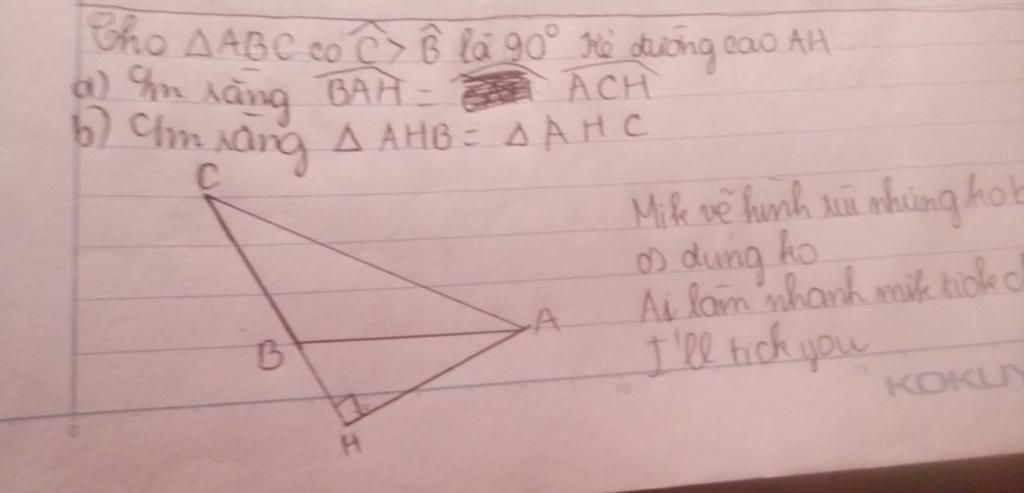 Cho △ABC có Ĉ > B̂ là 90° Kẻ đường cao AH
a) Cm rằng BAH = ACH
b) Cm rằng △ AHB = △ AHC
C
Mik vẽ hình rùi nhưng ko b
đúng ko
A
Ai làm nhanh mik tick c
B
I'll tick you
KOKUY
H